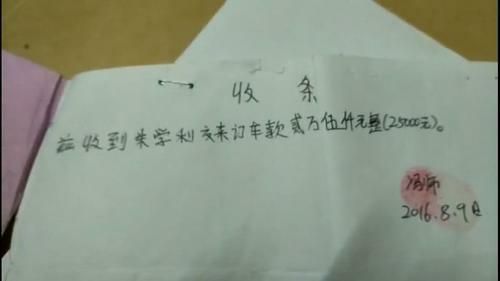 收条
兹收到朱学利交来订车款贰万伍仟元整(25000元)。
冯师
2016.8.9日